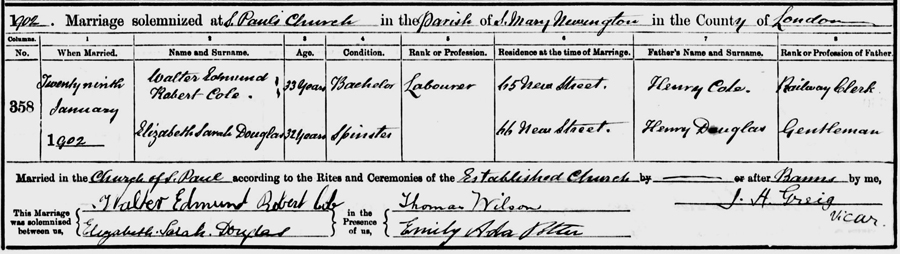 1902. Marriage solemnized at S. Paul's Church in the Parish of S. Mary Newington in the County of London
Columns. 1 2 3 4 5 6 7 8
No. When Married. Name and Surname. Age. Condition. Rank or Profession. Residence at the time of Marriage. Father's Name and Surname. Rank or Profession of Father.
358 Twenty ninth January 1902
Walter Edmund Robert Cole. 33 years Bachelor Labourer 65 New Street. Henry Cole. Railway Clerk
Elizabeth Sarah Douglas 32 years Spinster 66 New Street. Henry Douglas Gentleman
Married in the Church of S. Paul according to the Rites and Ceremonies of the Established Church by ——— or after Banns by me,
This Marriage was solemnized between us, { Walter Edmund Robert Cole
Elizabeth Sarah Douglas } in the Presence of us, { Thomas Wilson
Emily Ada Potter } J. H. Greig
Vicar.